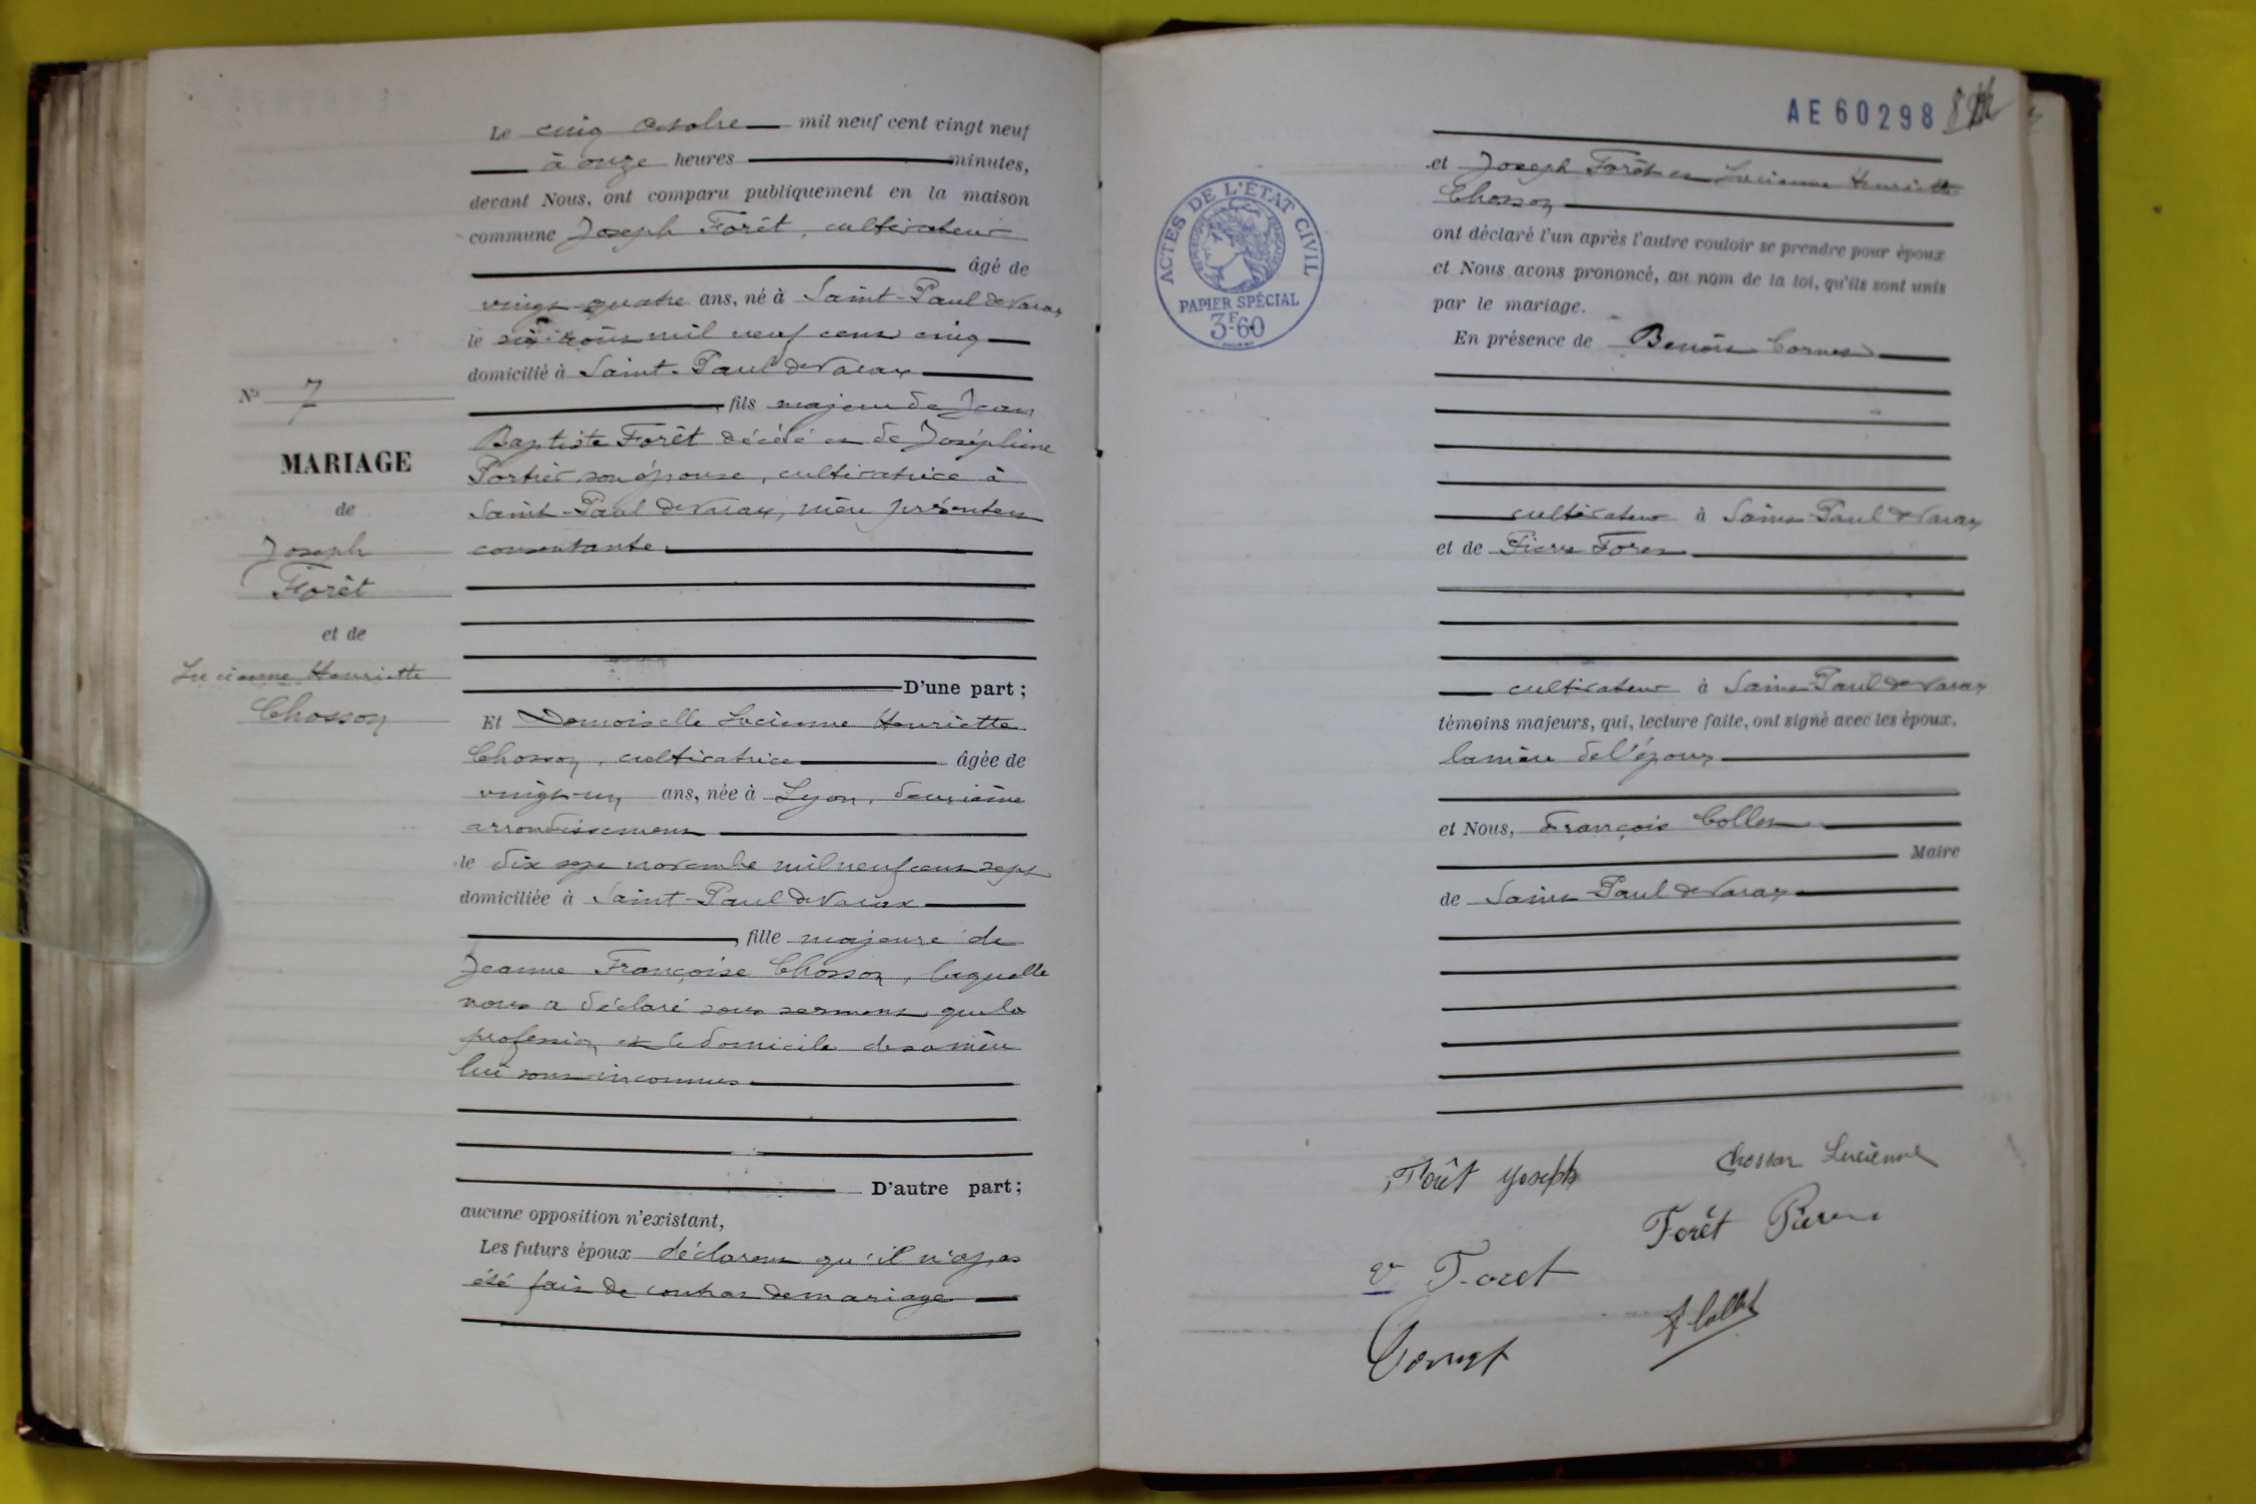 Le cinq Octobre mil neuf cent vingt neuf
à onze heures minutes,
devant Nous, ont comparu publiquement en la maison
commune Joseph Forêt, cultivateur
âgé de
vingt quatre ans, né à Saint-Paul de Varax
le six août mil neuf cent cinq
domicilié à Saint-Paul de Varax
, fils majeur de Jean
Baptiste Forêt décédé et de Joséphine
Portier son épouse, cultivatrice à
Saint-Paul de Varax, mère présente et
consentante
D'une part ;
N° 7
MARIAGE
de
Joseph
Forêt
et de
Lucienne Henriette
Chosson
Et Demoiselle Lucienne Henriette
Chosson, cultivatrice âgée de
vingt-un ans, née à Lyon, deuxième
arrondissement
le dix sept novembre mil neuf cent sept
domiciliée à Saint-Paul de Varax
, fille majeure de
Jeanne Françoise Chosson, laquelle
nous a déclaré sous serment que la
profession et le domicile de sa mère
lui sont inconnus
D'autre part ;
aucune opposition n'existant,
Les futurs époux déclarent qu'il n'a pas
été fait de contrat de mariage
AE 60298
ACTES DE L'ÉTAT CIVIL
PAPIER SPÉCIAL
3F.60
et Joseph Forêt et Lucienne Henriette
Chosson
ont déclaré l'un après l'autre vouloir se prendre pour époux
et Nous avons prononcé, au nom de la loi, qu'ils sont unis
par le mariage.
En présence de Benoît Cornet
cultivateur à Saint-Paul de Varax
et de Pierre Foret
cultivateur à Saint-Paul de Varax
témoins majeurs, qui, lecture faite, ont signé avec les époux,
la mère de l'époux
et Nous, François Collet
Maire
de Saint-Paul de Varax
Forêt Joseph Chosson Lucienne
Forêt Pierre
Ve Foret
F Collet
Cornet